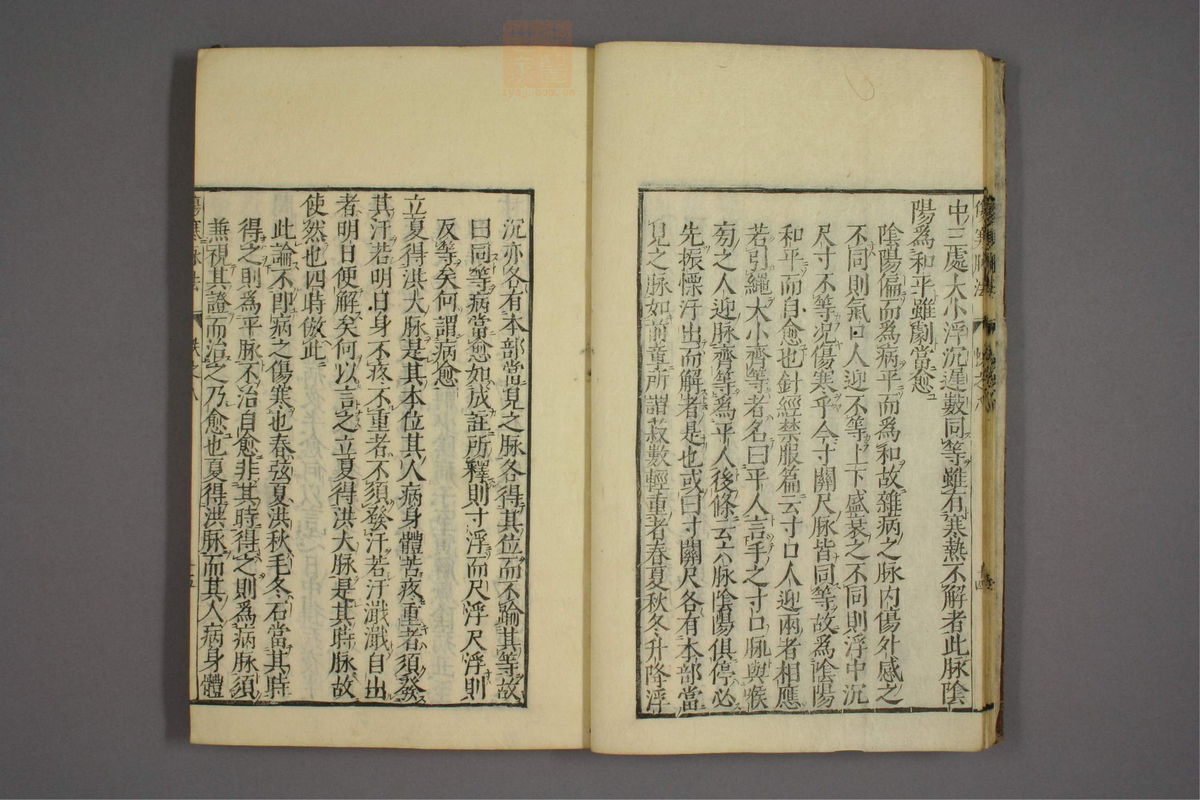 中三處大小浮沉遲數同等雖有寒熱不解者此脉陰
陽為和平雖劇當愈
陰陽偏而為病平而為和故雜病之脉内傷外感之
不同則氣口人迎不等上下盛衰之不同則浮中沉
尺寸不等况傷寒乎今寸關尺脉皆同等故為陰陽
和平而自愈也針經禁服篇云寸口人迎兩者相應
若引繩大小齊等者名曰平人言手之寸口脉與喉
旁之人迎脉齊等為平人後條云六脉陰陽俱停必
先振慄汗出而解者是也或曰寸關尺各有本部當
見之脉如前章所謂菽數輕重者春夏秋冬升降浮
沉亦各有本部當見之脉各得其位而不踰其等故
曰同等病當愈如成註所釋則寸浮而尺浮尺浮則
反等矣何謂病愈
立夏得洪大脉是其本位其人病身體苦疼重者須發
其汗若明日身不疼不重者不須發汗若汗濈濈自出
者明日便解矣何以言之立夏得洪大脉是其時脉故
使然也四時倣此
此論不即病之傷寒也春弦夏洪秋毛冬石當其時
得之則為平脉不治自愈非其時得之則為病脉須
兼視其證而治之乃愈也夏得洪脉而其人病身體
傷寒脉法